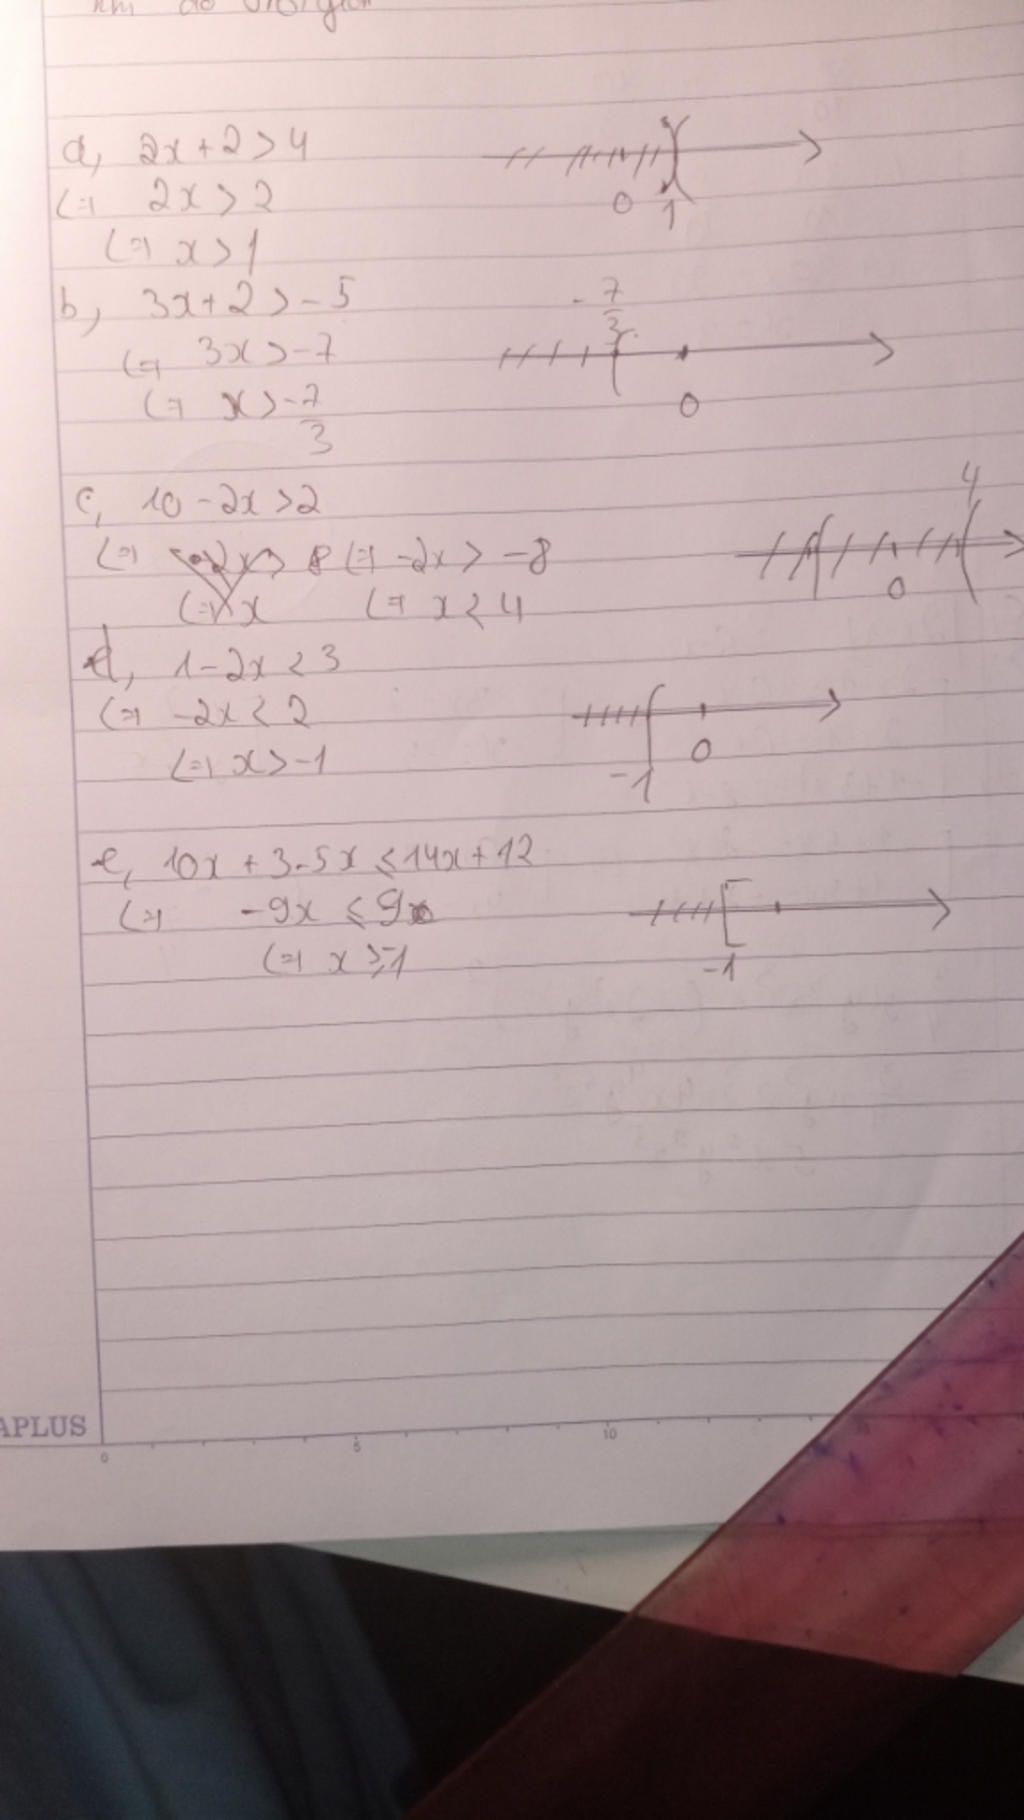 a, 2x + 2 > 4
(=) 2x > 2
(=) x > 1
0 1
b, 3x + 2 > - 5
(=) 3x > - 7
(=) x > -7/3
-7/3
0
c, 10 - 2x > 2
(=) -2x > 8 (=) -2x > -8
(=) x (=) x < 4
4
0
d, 1 - 2x < 3
(=) -2x < 2
(=) x > -1
-1 0
e, 10x + 3 - 5x ≤ 14x + 12
(=) -9x ≤ 9
(=) x ≥ -1
-1
APLUS
0 5 10